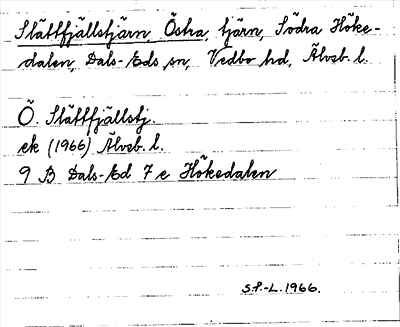 Slättfjällstjärn, Östra, tjärn, Södra Höke-
dalen, Dals-Eds sn, Vedbo hd, Älvsb. l.
Ö. Slättfjällstj.
ek (1966) Älvsb. l.
9 B Dals-Ed 7 e Hökedalen
S.P.-L. 1966.